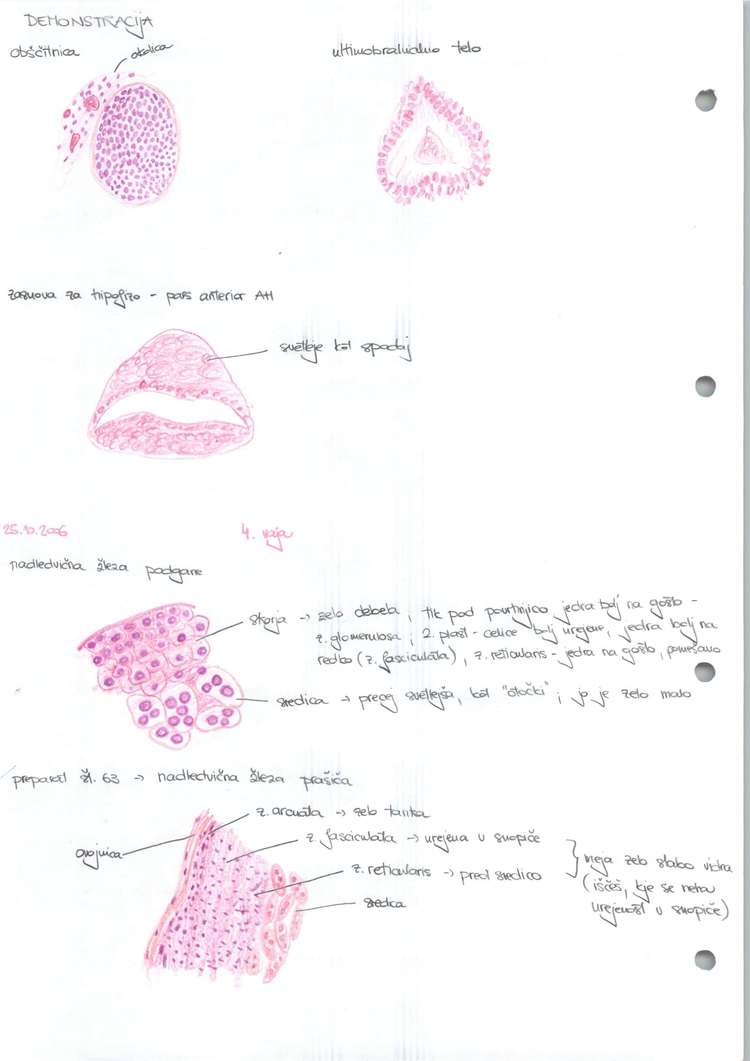 DEMONSTRACIJA
obščitnica
okolica
ultimobranhialno telo
zasnova za hipofizo - pars anterior AH
svetleje kot spodaj
25.10.2006
4. vaja
nadledvična žleza podgane
skorja → zelo debela ; tik pod površnjico jedra bolj na gosto -
z. glomerulosa ; 2. plast - celice bolj urejene, jedra bolj na
redko (z. fasciculata), z. reticularis - jedra na gosto, pomešano
sredica → precej svetlejša, kot "otočki" ; jo je zelo malo
preparat št. 63 → nadledvična žleza prašiča
z. arcuata → zelo tanka
ovojnica
z. fasciculata → urejena v snopiče
z. reticularis → pred sredico
sredica
meja zelo slabo vidna
(iščeš, kje se neha
urejenost v snopiče)